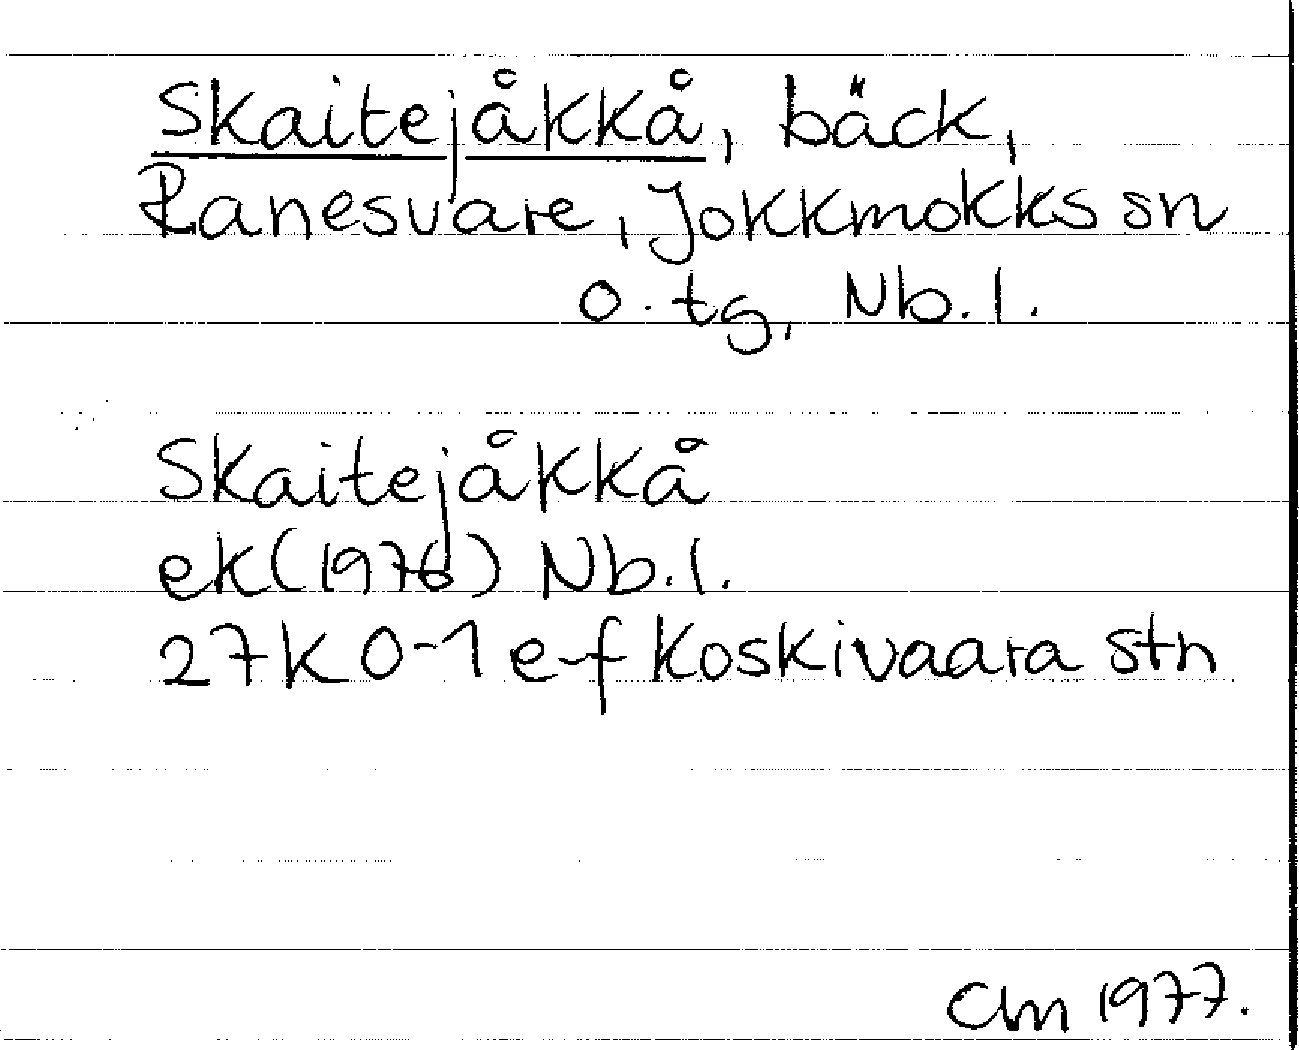 Skaitejåkkå, bäck,
Ranesvare, Jokkmokks sn
o. tg, Nb. l.
Skaitejåkkå
ek (1976) Nb. l.
27K 0-1 e-f Koskivaara stn
Clm 1977.